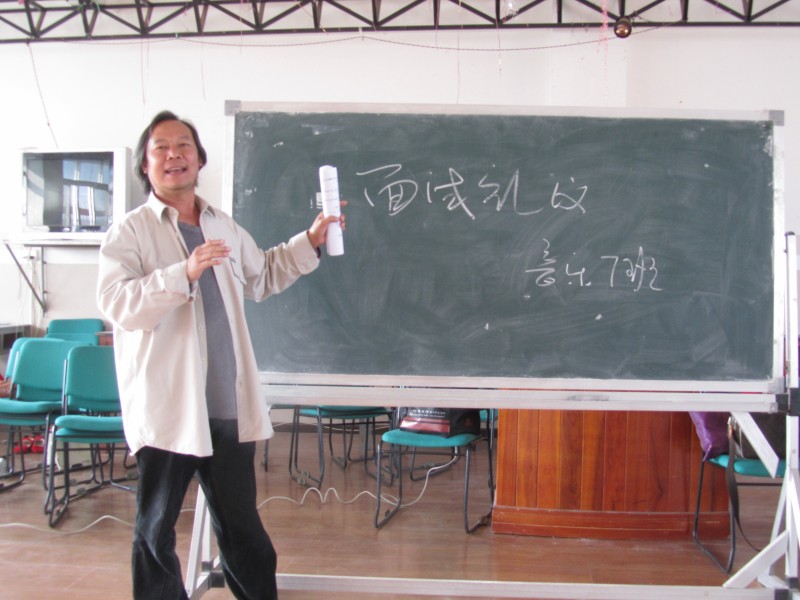 面试礼仪
音乐7班